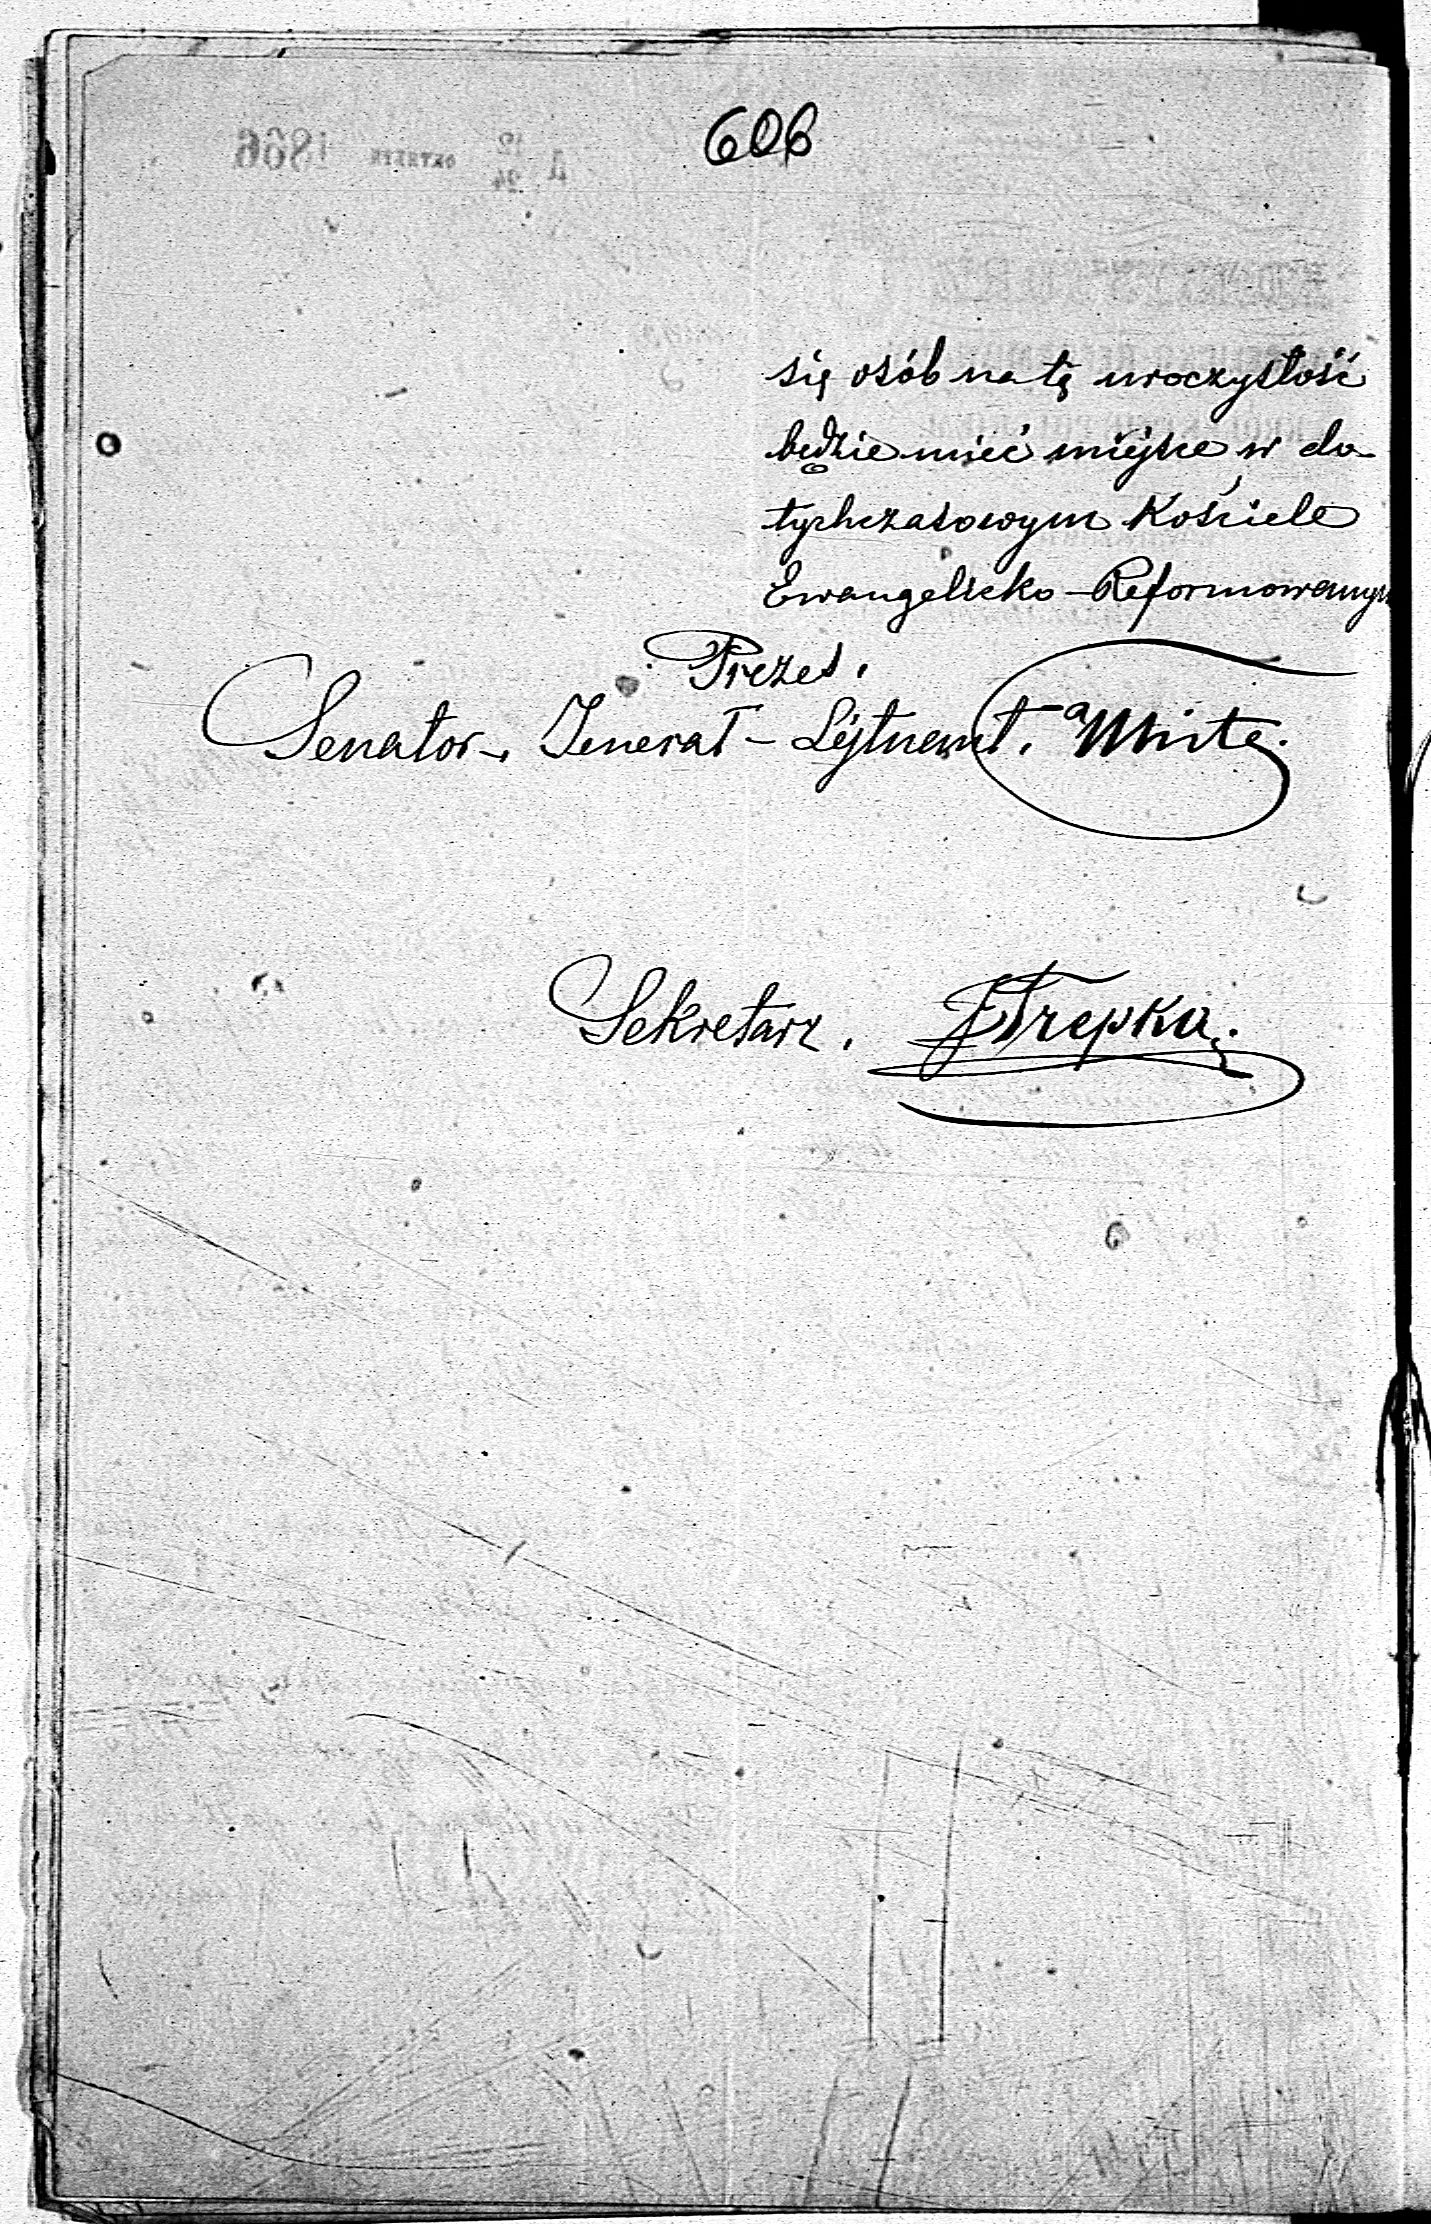 606
się osób na tę uroczystość
będzie mieć miejsce w do-
tychczasowym Kościele
Ewangelicko-Reformowanym
Prezes.
Senator, Jenerał-Lejtnant. White.
Sekretarz. JTrepka.